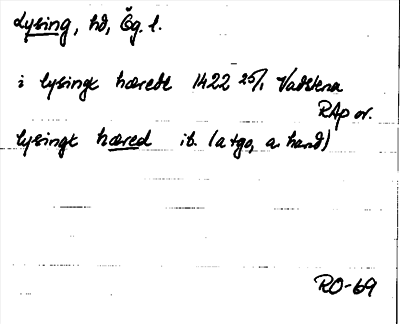 Lysing, hd, Ög. l.
i lysingx hæredt 1422 25/1 Vadstena
RAp or.
lysingx hæred ib. (a tgo, a. hand)
RO-69